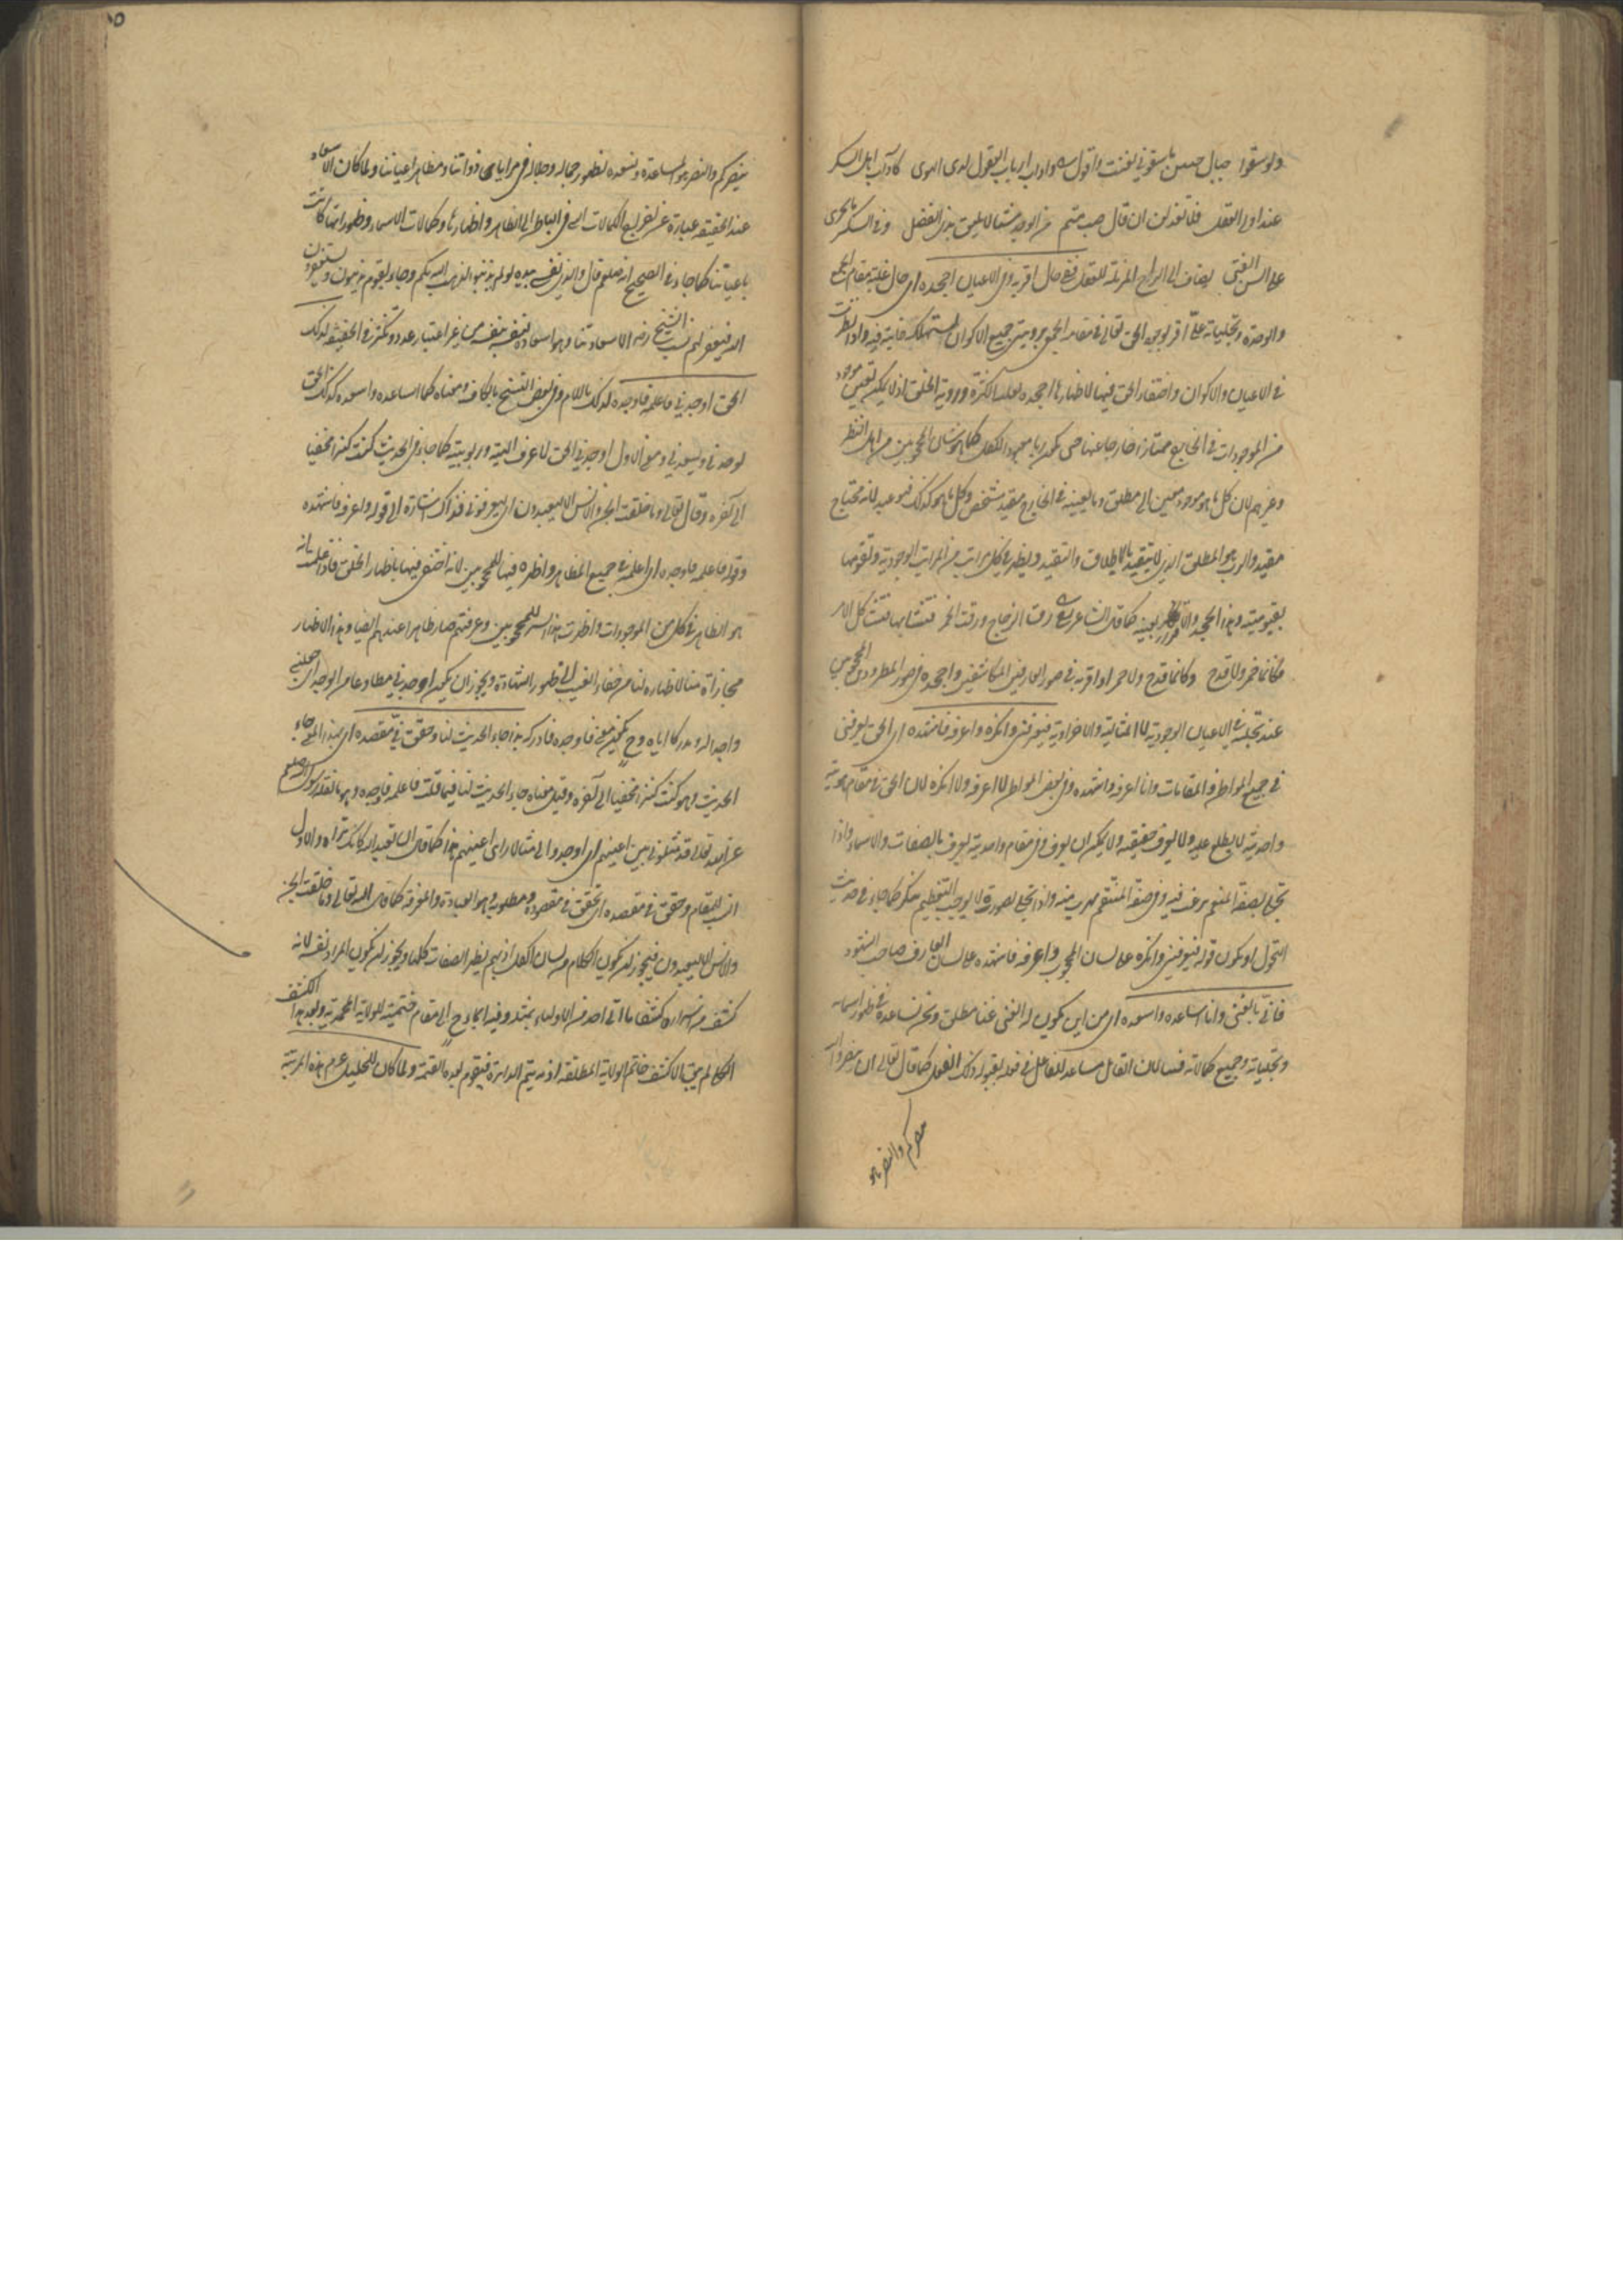 ولو سقوا جبال حنين ما سقوني لغنت واقول شعر واداب ارباب العقول لدى الهوى كآداب اهل السكر
عند اولى العقل فلا تعذلن ان قال صب متيم من الوجد شيئا لا يليق بذى الفضل وفى السكر ما يجرى
على السن الفتى يضاف الى الراح المزيلة للعقل ففى حال اقر به وفى الاعيان اجحده اى حال غلبة مقام الجمع
والوحدة وتجلياته على اقر بوجود الحق تعالى فى مقامه الجمعى برويتى جميع الاكوان مستهلكة فانية فيه واذا نظرت
فى الاعيان والاكوان واختفاء الحق فيها لاظهارها اجحده لغلبة الكثرة وروية الخلق اذ لا يمكن تعيين موجود
من الموجودات فى الخارج ممتازا خارجا عنها حتى يكون ربا معبودا للكل كما هو شان المحجوبين من اهل النظر
وغيرهم لان كل ما هو موجود معين الى مطلق وما يعينه فى الخارج مقيد متشخص وكل ما هو كذلك فهو عبد لانه محتاج
مقيد والرب هو المطلق الذى لا يتقيد بالاطلاق والتقييد ويظهر فى كل مراتب من المراتب الوجودية وتقومها
بقيوميته وهذا الجحد والاقرار بعينه كما قال الشاعر شعر رق الزجاج ورقت الخمر فتشابها فتشاكل الامر
فكانما خمر ولا قدح وكانما قدح ولا خمر او اقر به فى صور العارفين المكاشفين واجحده فى صور المطرودين المحجوبين
عند تجليه فى الاعيان الوجودية لا المثالية والاخراوية فيعرفنى وانكره واعرفه فاشهده اى الحق يعرفنى
فى جميع المواطن والمقامات وانا اعرفه واشهده وفى بعض المواطن لا اعرفه ولا انكره لان الحق فى مقام هويته
واحديته لا يطلع عليه ولا يعرف حقيقته ولا يمكن ان يعرف وفى مقام واحديته يعرف بالصفات والاسماء واذا
تجلى بصفة المنعم يرغب فيه وفى صفة المنتقم يهرب منه واذا تجلى بصورة لا يوجب التعظيم ينكر كما جاء فى حديث
التحول او يكون قوله فيعرفنى وانكره على لسان المحجوب واعرفه فاشهده على لسان العارف صاحب الشهود
فانى بالغنى وانا اساعده واسعده اى من اين يكون له الغنى غنا مطلق ونحن نساعده فى ظهور اسمائه
وتجلياته وجميع كمالاته فينا لان القابل مساعد للفاعل فى فعله بقبوله ذلك الفعل كما قال تعالى ان تنصروا الله
ينصركم والنصر ما هو
ينصركم والنصر هو المساعدة ونسعده بظهور جماله وجلاله فى مرايا ذواتنا ومظاهر اعياننا ولما كان الاسعاد
عند الحقيقة عبارة عن اخراج الكمالات التى فى الباطن الى الظاهر واظهارها وكمالات الاسماء وظهوراتها كانت
باعياننا كما جاء فى الصحيح انه صلعم قال والذى نفسى بيده لو لم تذنبوا لذهب الله بكم وجاء بقوم يذنبون ويستغفرون
الله فيغفر لهم نسب الشيخ رضه الاسعاد بنا وهو اسعاده نفسه بنفسه من غير اعتبار عدد وتكثر فى الحقيقة لذلك
الحق اوجدنى فاعلمه فاوجده لذلك باللام وفى بعض النسخ بالكاف ومعناه كما اساعده واسعده كذلك الحق
يوجدنى ويسعدنى ومعنى الاول اوجدنى الحق لاعرف الهيته وربوبيته كما جاء فى الحديث كنت كنزا مخفيا
الى آخره وقال تعالى وما خلقت الجن والانس الا ليعبدون اى ليعرفونى فذاك اشارة الى قوله واعرفه فاشهده
وقوله فاعلمه فاوجده اى اعلمه فى جميع المظاهر واظهره فيها للمحجوبين لانه اختفى فيها باظهار الخلق فاذا علمت انه
هو الظاهر فى كل من الموجودات واظهرت هذا السر للمحجوبين وعرفتهم صار ظاهرا عندهم ايضا وهذا الاظهار
مجازاة منا لاظهاره لنا من خفاء الغيب الى ظهور الشهادة ويجوز ان يكون اوجدنى مطاوعا من الوجد اى جعلنى
واجدا له ومدركا اياه وح يكون معنى فاوجده فادركه بذا جاء الحديث لنا وحقق فى مقصده اى بهذا المعنى جاء
الحديث وهو كنت كنزا مخفيا الى آخره وقيل معناه جاء الحديث لنا فيما قلت فاعلمه فاوجده وهو ما نقله رسول الله صلعم
عن الله تعالى قد مثلونى بين اعينهم اى اوجدوا لى مثالا راى اعينهم هذا كما قال ان تعبد الله كانك تراه والاول
انسب للمقام وحقق فى مقصده اى تحقق فى مقصوده ومطلوبه وهو العبادة والمعرفة كما قال الله تعالى وما خلقت الجن
والانس الا ليعبدون فيجوز ان يكون الكلام من لسان الكل اذ بهم يظهر الصفات كلها ويجوز ان يكون المراد نفسه لانه
كشف من اسراره كشفا ما اتى احد من الاولياء بمثله وفيه ايماء وح الى مقام ختمية للولاية المحمدية وبعد هذا الكشف
الكلى لم يبق الا كشف خاتم الولاية المطلقة اذ به يتم الدائرة فيقوم بعده القيمة ولما كان للخليل عم هذه المرتبة